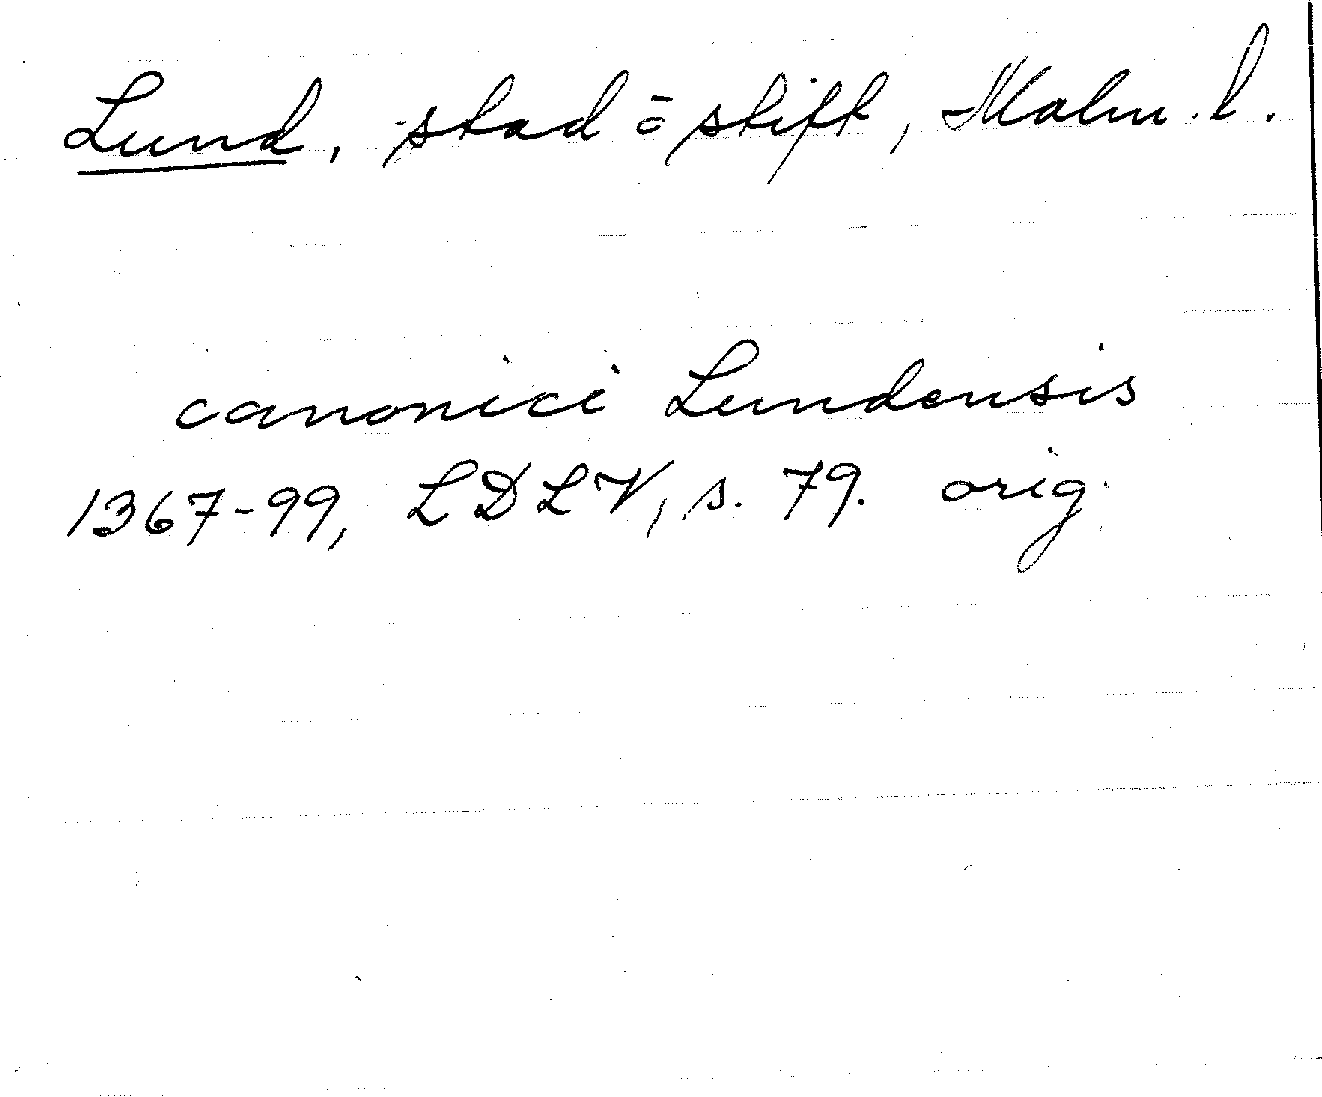 Lund, stad o stift, Malm. l.
canonici Lundensis
1367-99, LDLV, s. 79. orig.